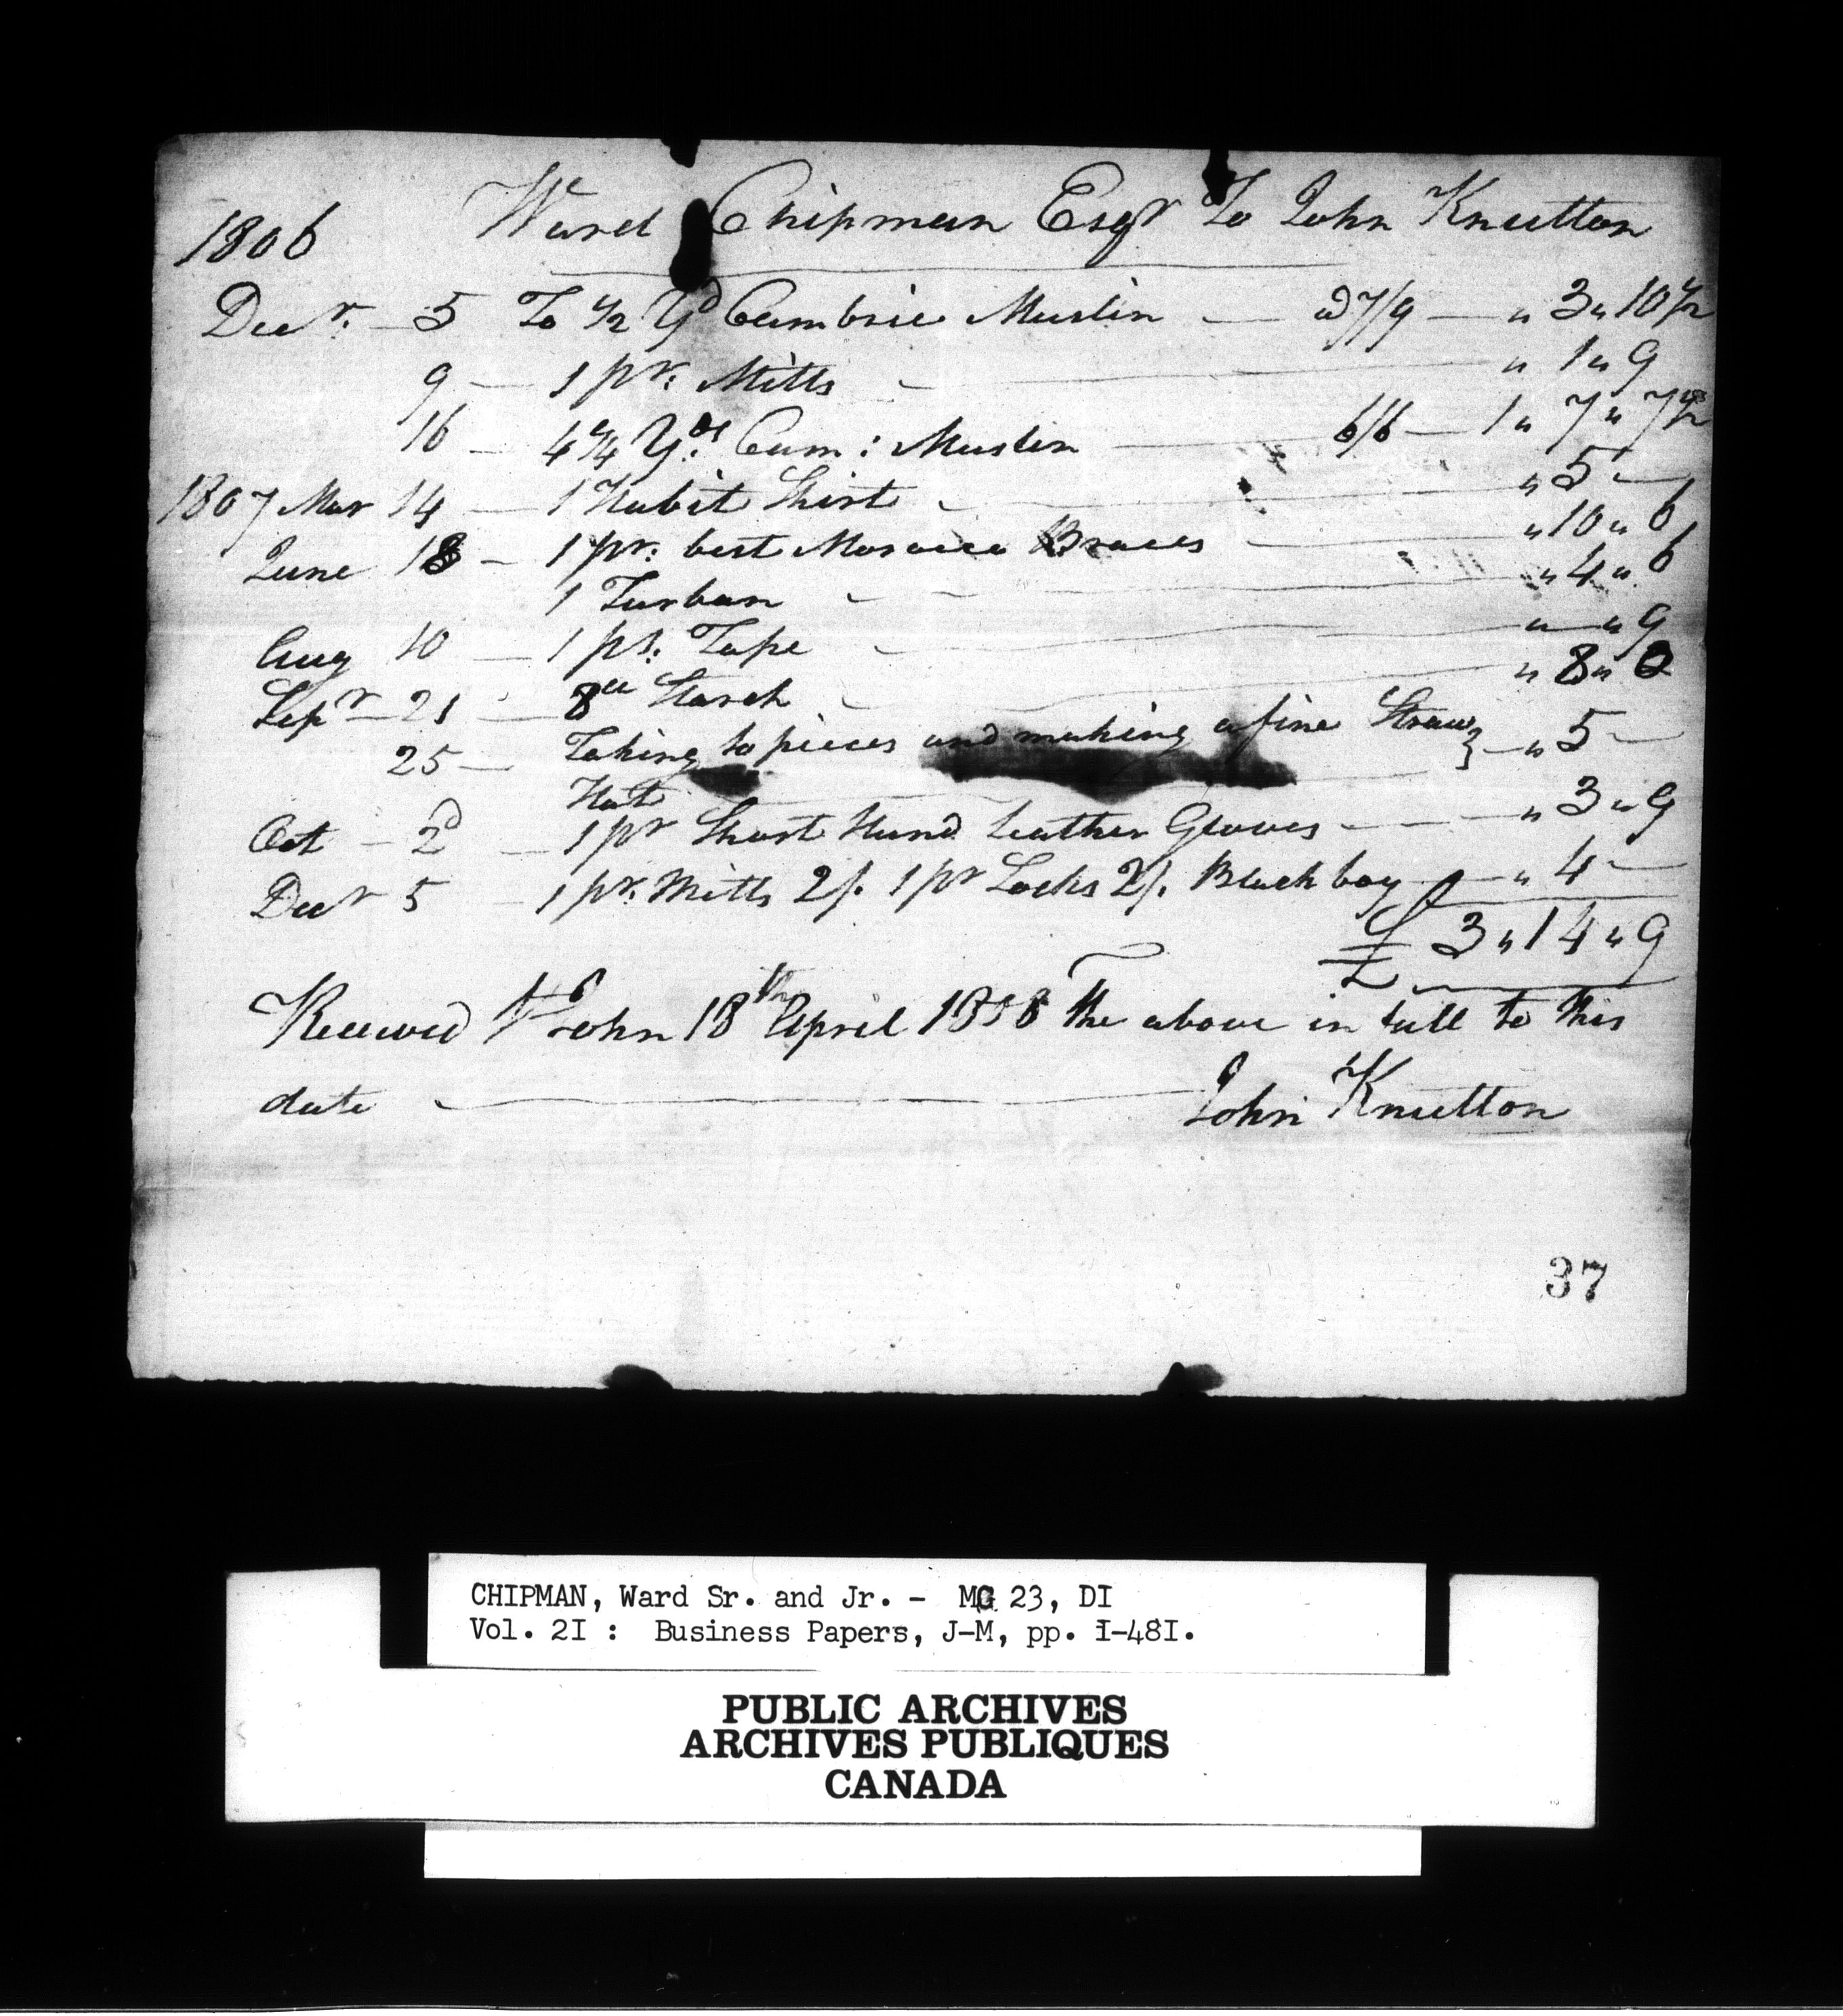 1806 Ward Chipman Esqr To John Knutton
Decr. 5 To 1/2 Yd Cambric Muslin — @ 7/9 — " 3 " 10 1/2
9 — 1 pr. Mitts — " 1 " 9
16 — 4 1/4 Yds. Cam: Muslin — 6/6 — 1 " 7 " 7 1/2
1807 Mar 14 — 1 Habit Shirt — " 5 —
June 18 — 1 pr. best Morocco Braces — " 10 " 6
1 Turban — " 4 " 6
Aug 10 — 1 ps. Tape — " — " 9
Sepr 21 — 8 Starch — " 8 " 0
25 — Taking to pieces and making a fine Straw } — " 5 —
Hat
Oct — 2d — 1 pr Short Hand Leather Gloves — " 3 " 9
Decr 5 — 1 pr. Mitts 2/. 1 pr Socks 2/. Black boy — " 4 —
£ 3 " 14 " 9
Received St John 18th April 1808 the above in full to this
date — John Knutton
37
CHIPMAN, Ward Sr. and Jr. - MG 23, DI
Vol. 2I : Business Papers, J-M, pp. I-48I.
PUBLIC ARCHIVES
ARCHIVES PUBLIQUES
CANADA